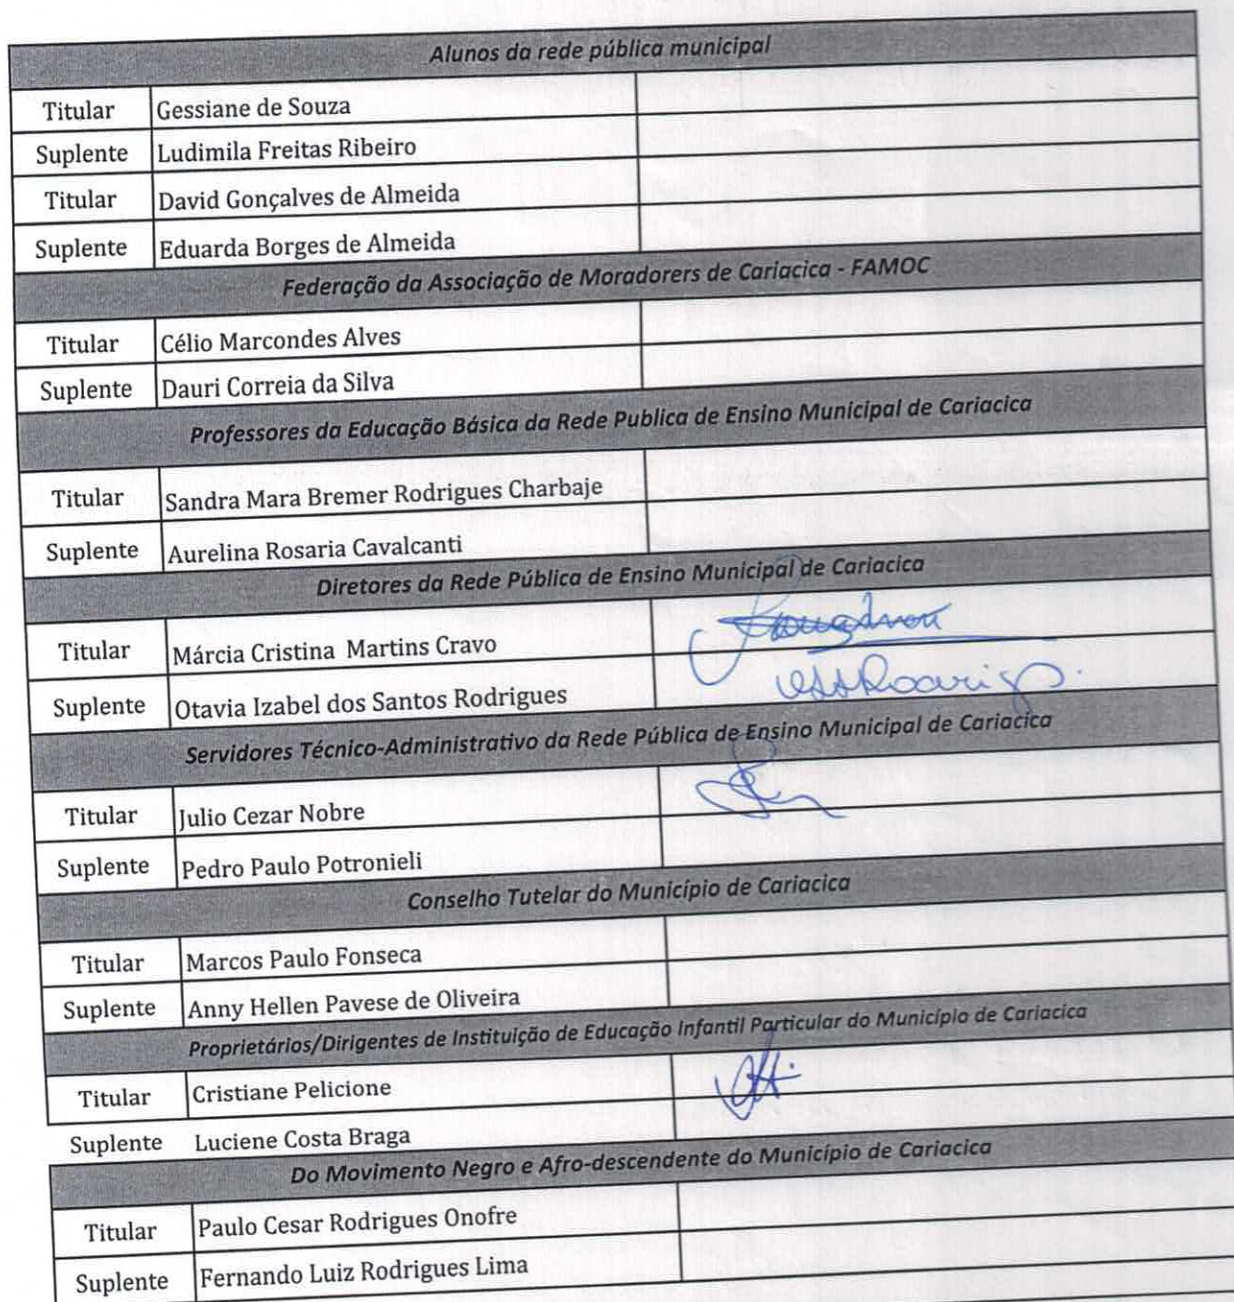 Alunos da rede pública municipal
Titular Gessiane de Souza
Suplente Ludimila Freitas Ribeiro
Titular David Gonçalves de Almeida
Suplente Eduarda Borges de Almeida
Federação da Associação de Moradorers de Cariacica - FAMOC
Titular Célio Marcondes Alves
Suplente Dauri Correia da Silva
Professores da Educação Básica da Rede Publica de Ensino Municipal de Cariacica
Titular Sandra Mara Bremer Rodrigues Charbaje
Suplente Aurelina Rosaria Cavalcanti
Diretores da Rede Pública de Ensino Municipal de Cariacica
Titular Márcia Cristina Martins Cravo
Suplente Otavia Izabel dos Santos Rodrigues
Servidores Técnico-Administrativo da Rede Pública de Ensino Municipal de Cariacica
Titular Julio Cezar Nobre
Suplente Pedro Paulo Potronieli
Conselho Tutelar do Município de Cariacica
Titular Marcos Paulo Fonseca
Suplente Anny Hellen Pavese de Oliveira
Proprietários/Dirigentes de Instituição de Educação Infantil Particular do Município de Cariacica
Titular Cristiane Pelicione
Suplente Luciene Costa Braga
Do Movimento Negro e Afro-descendente do Município de Cariacica
Titular Paulo Cesar Rodrigues Onofre
Suplente Fernando Luiz Rodrigues Lima